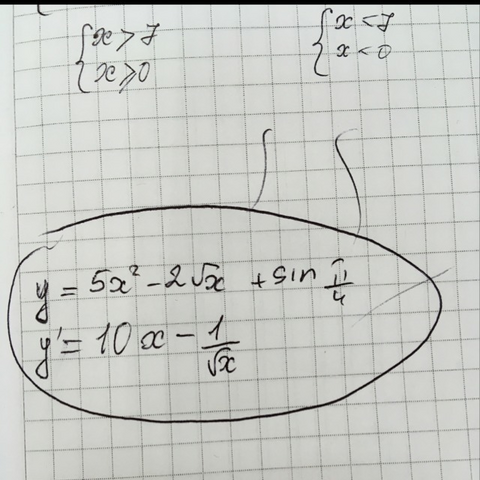 {x > 7
x ≥ 0
{x < 7
x < 0
y = 5x² - 2√x + sin π/4
y' = 10x - 1/√x